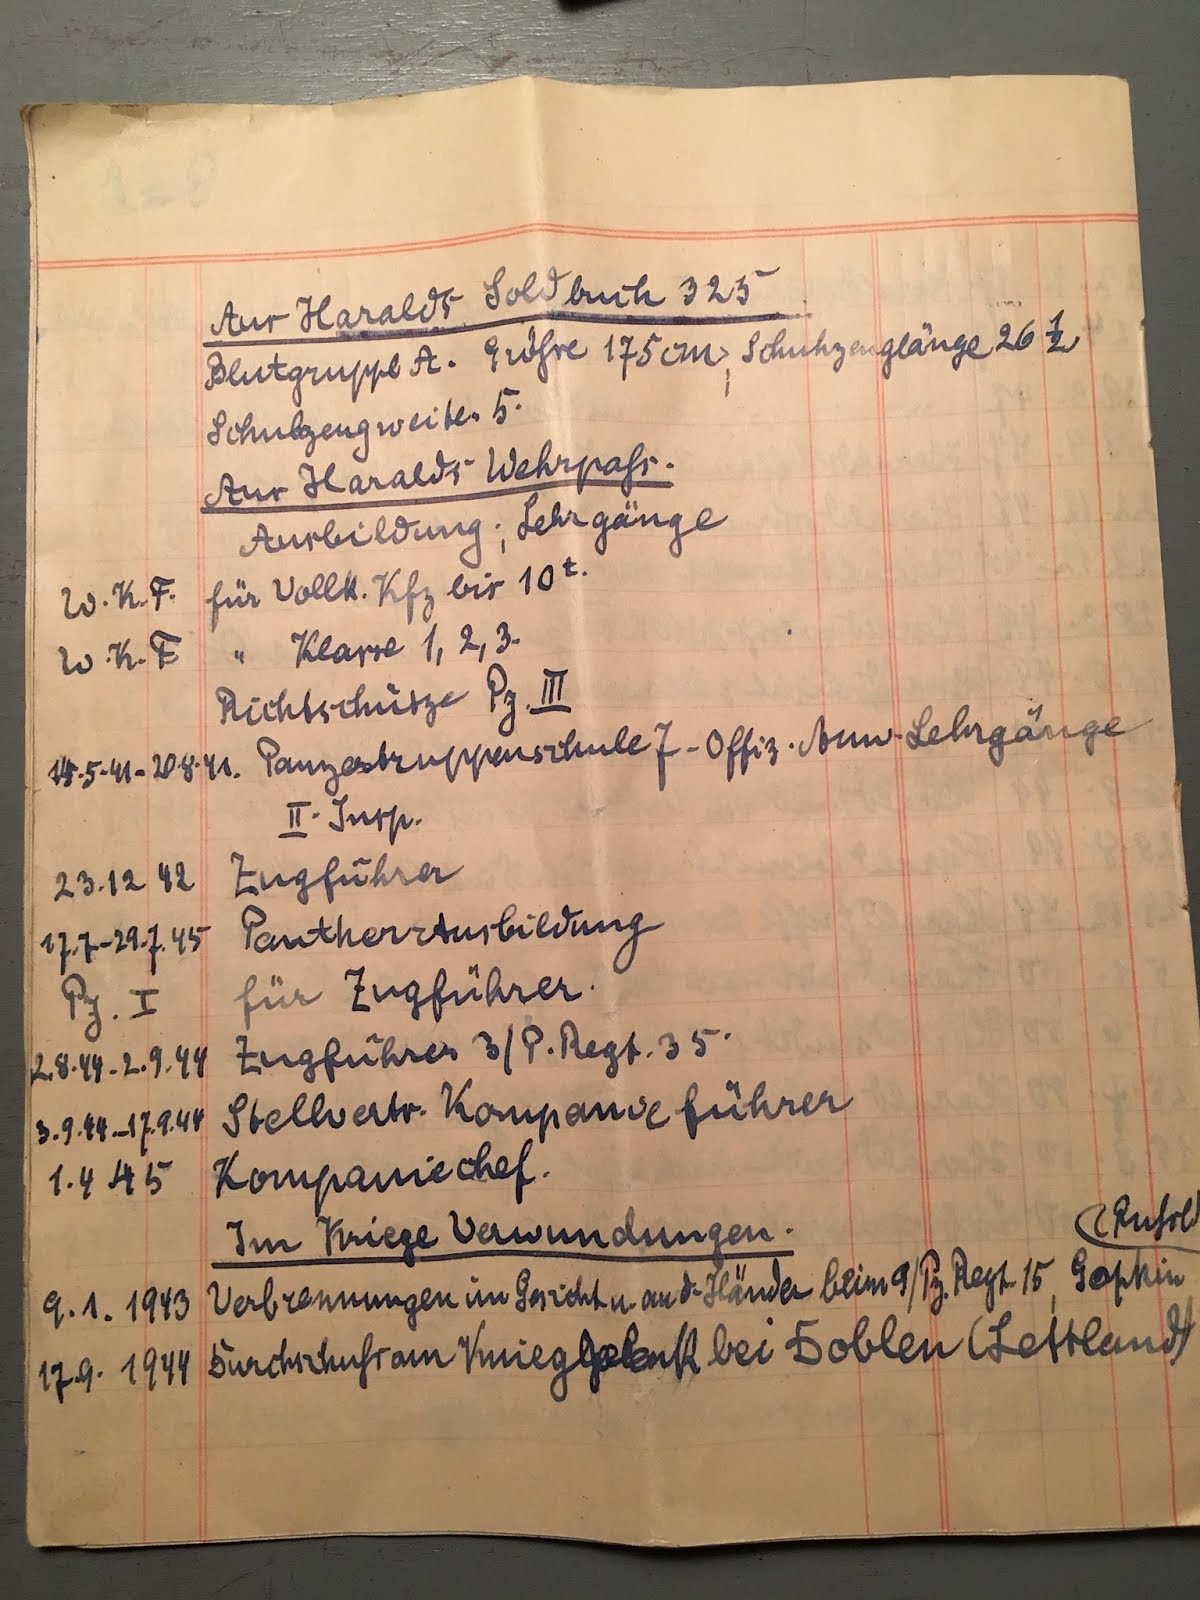 Aus Haralds Soldbuch 325
Blutgruppe A. Größe 175 cm, Schuhzeuglänge 26 1/2
Schuhzeugweite. 5.
Aus Haralds Wehrpass.
Ausbildung; Lehrgänge
W.K.F. für Vollk. Kfz bis 10t.
W.K.F " Klasse 1, 2, 3.
Richtschütze Pz. III
14.5.41-20.8.41. Panzertruppenschule 7 - Offiz. Anw. Lehrgänge
II. Insp.
23.12 42 Zugführer
17.7-29.7.45 Panther-Ausbildung
Pz. I für Zugführer.
2.8.44-2.9.44 Zugführer 3/P. Regt. 35.
3.9.44-17.9.44 Stellvertr. Kompanie führer
1.4 45 Kompaniechef.
Im Kriege Verwundungen.
9.1.1943 Verbrennungen im Gesicht u. an d. Händen beim 9/Pz. Regt. 15,
17.9.1944 Durchschuss am Knie bei Doblen (Lettland)